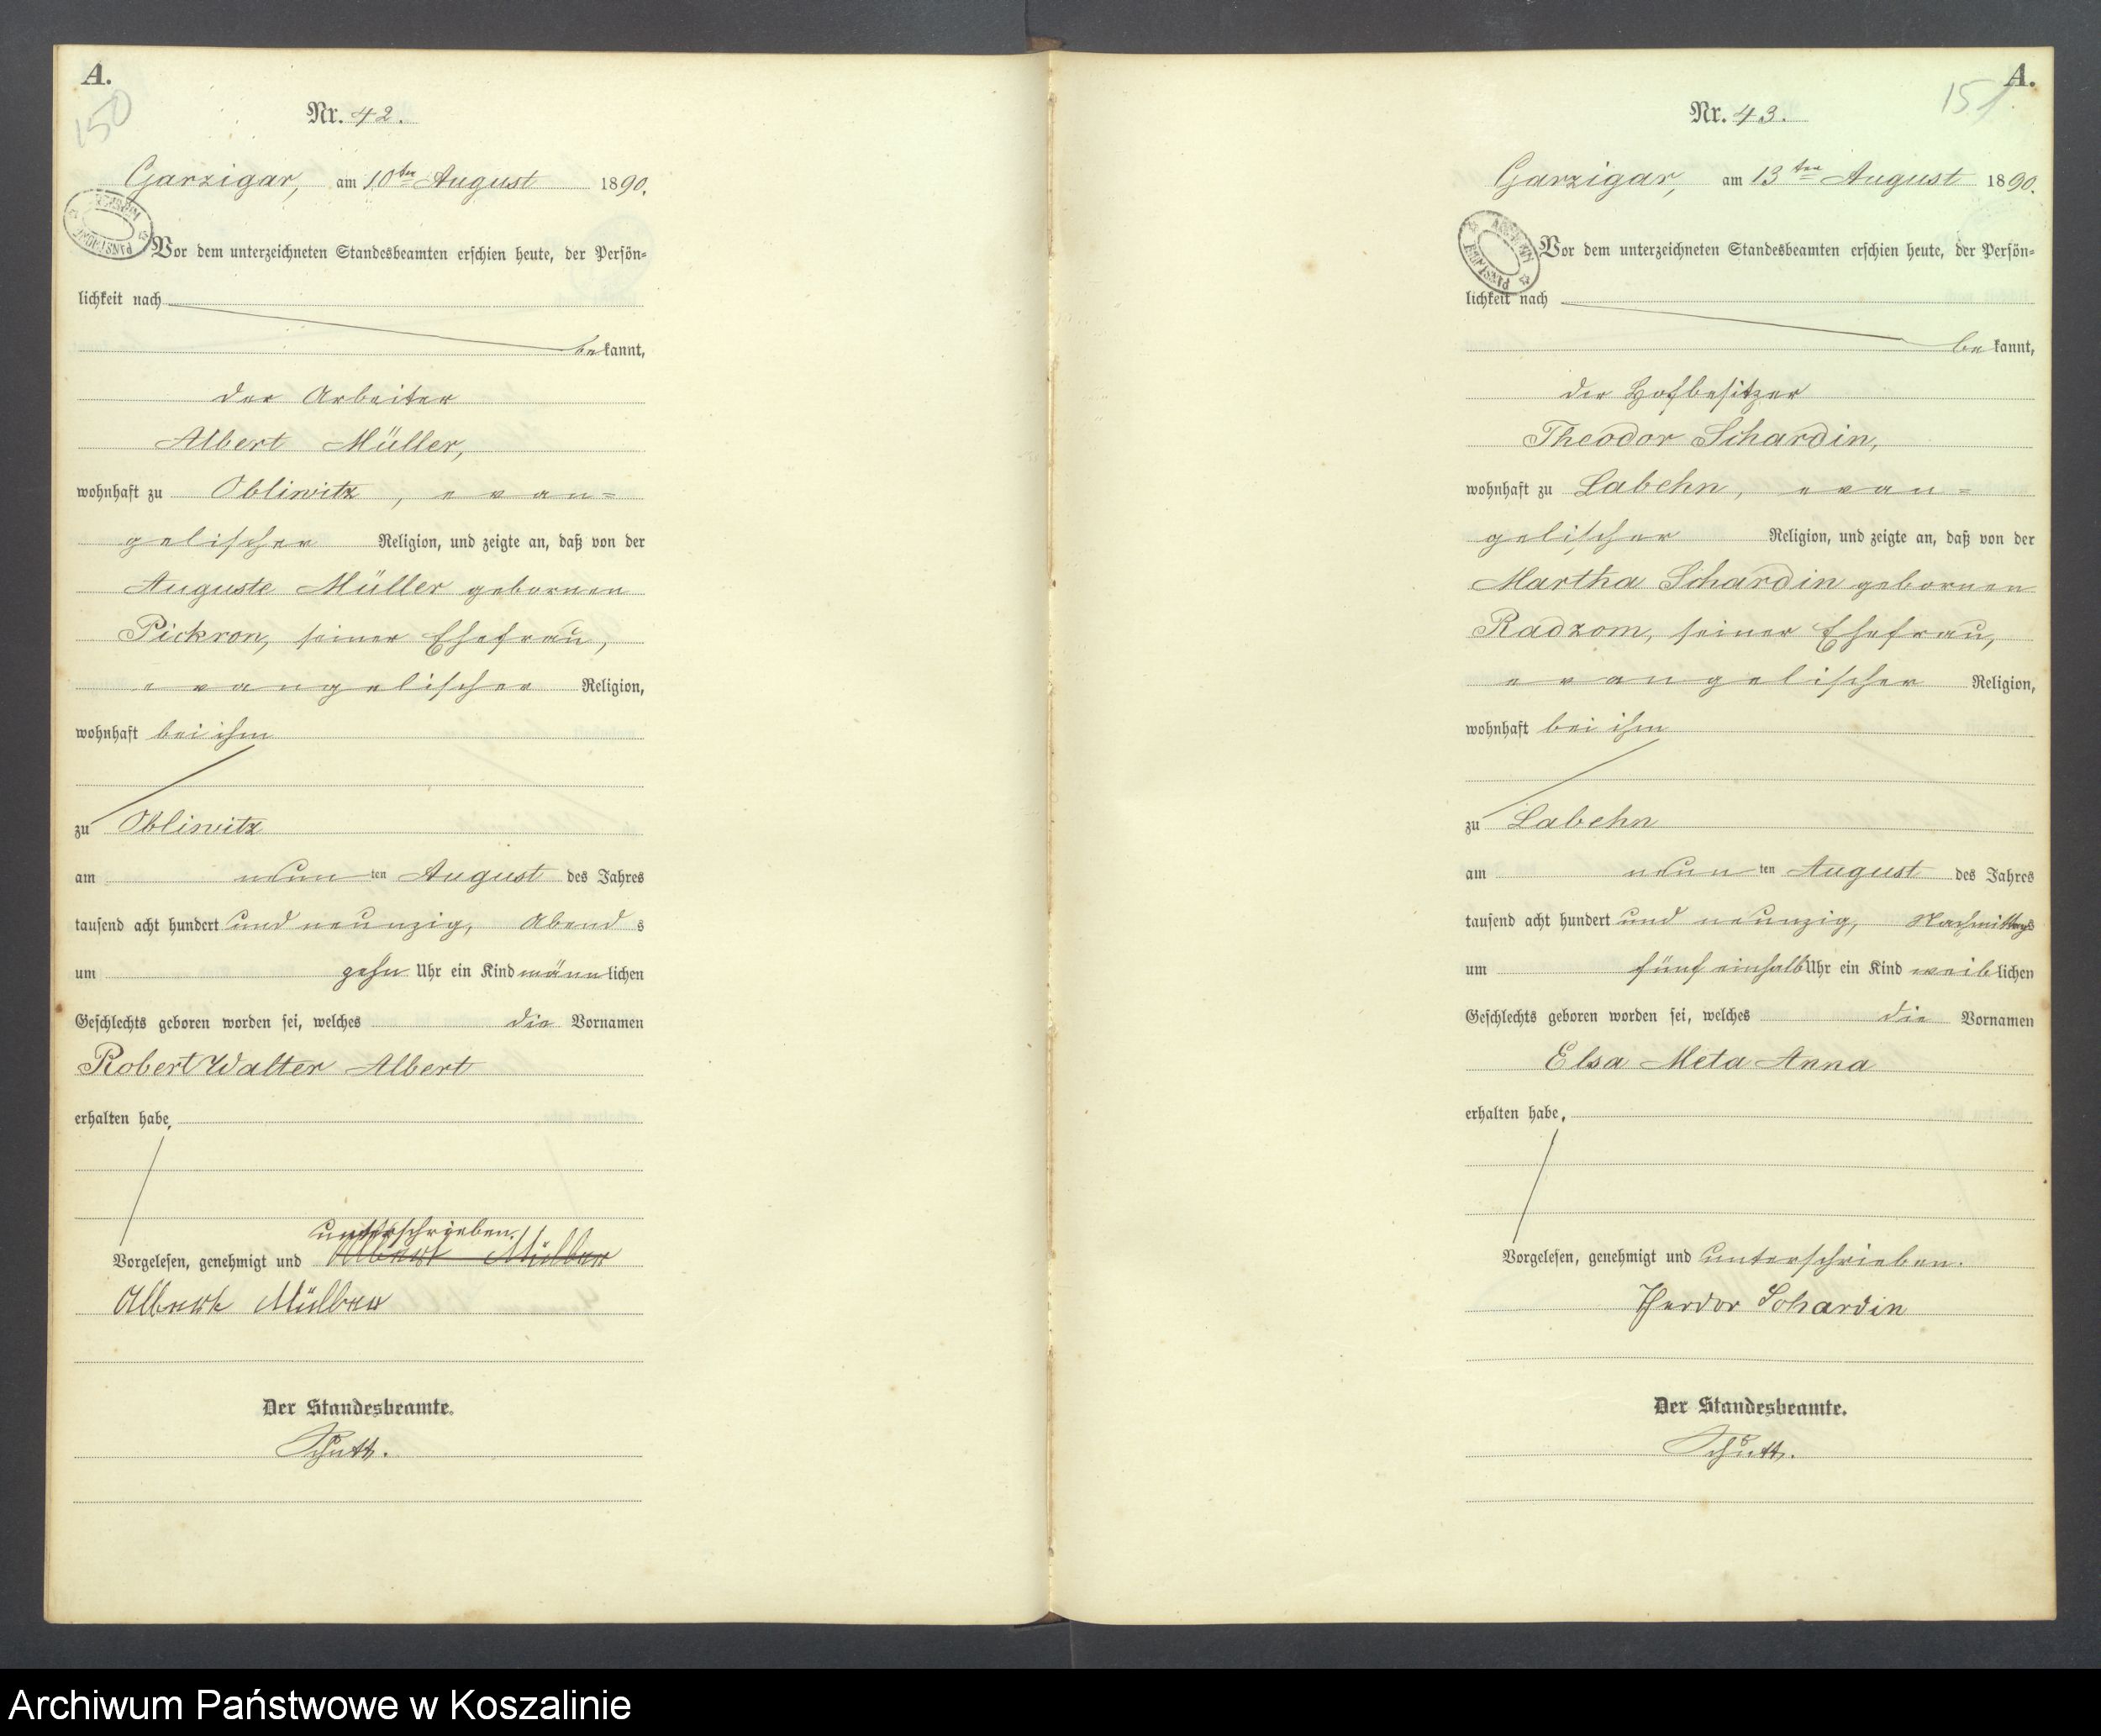 A.
150
Nr. 42.
Garzigar, am 10ten August 1890.
Vor dem unterzeichneten Standesbeamten erschien heute, der Persön=
lichkeit nach
bekannt,
der Arbeiter
Albert Müller,
wohnhaft zu Obliwitz, evan=
gelischer Religion, und zeigte an, daß von der
Auguste Müller gebornen
Pickron, seiner Ehefrau,
evangelischer Religion,
wohnhaft bei ihm
zu Obliwitz
am neunten August des Jahres
tausend acht hundert und neunzig, Abends
um zehn Uhr ein Kind männlichen
Geschlechts geboren worden sei, welches die Vornamen
Robert Walter Albert
erhalten habe.
unterschrieben.
Vorgelesen, genehmigt und Albert Müller
Albert Müller
Der Standesbeamte.
Schütt.
A.
151.
Nr. 43.
Garzigar, am 13ten August 1890.
Vor dem unterzeichneten Standesbeamten erschien heute, der Persön=
lichkeit nach
bekannt,
der Hofbesitzer
Theodor Schardin,
wohnhaft zu Labehn, evan=
gelischer Religion, und zeigte an, daß von der
Martha Schardin gebornen
Radzom, seiner Ehefrau,
evangelischer Religion,
wohnhaft bei ihm
zu Labehn
am neunten August des Jahres
tausend acht hundert und neunzig, Nachmittags
um fünf einhalb Uhr ein Kind weiblichen
Geschlechts geboren worden sei, welches die Vornamen
Elsa Meta Anna
erhalten habe.
Vorgelesen, genehmigt und unterschrieben.
Theodor Schardin
Der Standesbeamte.
Schütt.
Archiwum Państwowe w Koszalinie